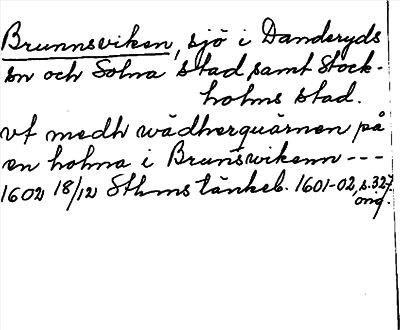 Brunnsviken, sjö i Danderyds
sn och Solna stad samt Stock-
holms stad.
vt medh wädherquärnen på
en holma i Brunswikenn ---
1602 18/12 Sthms tänkeb. 1601-02, s.327.
orig.